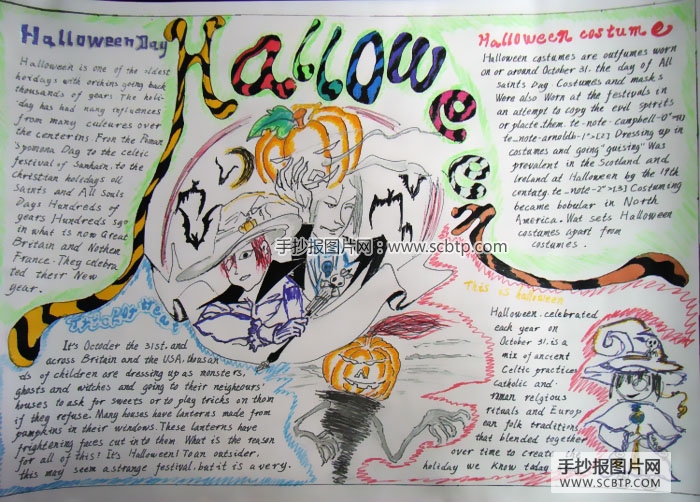 Halloween
Halloween Day
Halloween is one of the oldest
hovidays with orthins going back
thousands of years The holi-
day has had nany influences
from many cultures over
the centerins. From the Roman
's pomona Day to the celtic
festival of Samhain. to the
Christdan holidays all
saints and All souls
Days Hundreds of
years Hundreds 'sgo
in what is now Great
Britain and Nothem
France. They celebra
ted their New
year.
Halloween costume
Halloween costumes are outfumes worn
on or around October 31. the day of All
saints Day Costumes and masks
Were also Worn at the festivals in
an attempt to copy the evil spirits
or placte them. te-note-campbell-0"
te-note-arnoldb-1">[2] Dressing up in
costumes and going "guising" Was
prevalent in the Scotland and
Ireland at Halloween by the 19th
centaty. te-note-2">[3] Costuming
became bobular in North
America. Wat sets Halloween
costumes apart from
costumes.
手抄报图片网:www.scbtp.com
trick or treat
It's Occoder the 31st. and
across Britain and the USA, thousan
ds of children are dressing up as monsters,
ghosts and witches and going to their neigbours'
houses to ask for sweets or to play tricks on them
if they refuse. Many houses have lanterns made from
pampkins in their windows. These lanterns have
frightening faces cut in to them What is the reason
for all of this? It's Halloween! To an outsider.
this may seem a strange festival. but it is a very.
This is halloween
Halloween. celebrated
each year on
October 31. is a
mix of ancient
Celtic practices
catholic and
roman relgious
rituals and Europ
ean folk traditions
that blended together
over time to create
holiday we Know today
手抄报图片网
WWW.SCBTP.COM